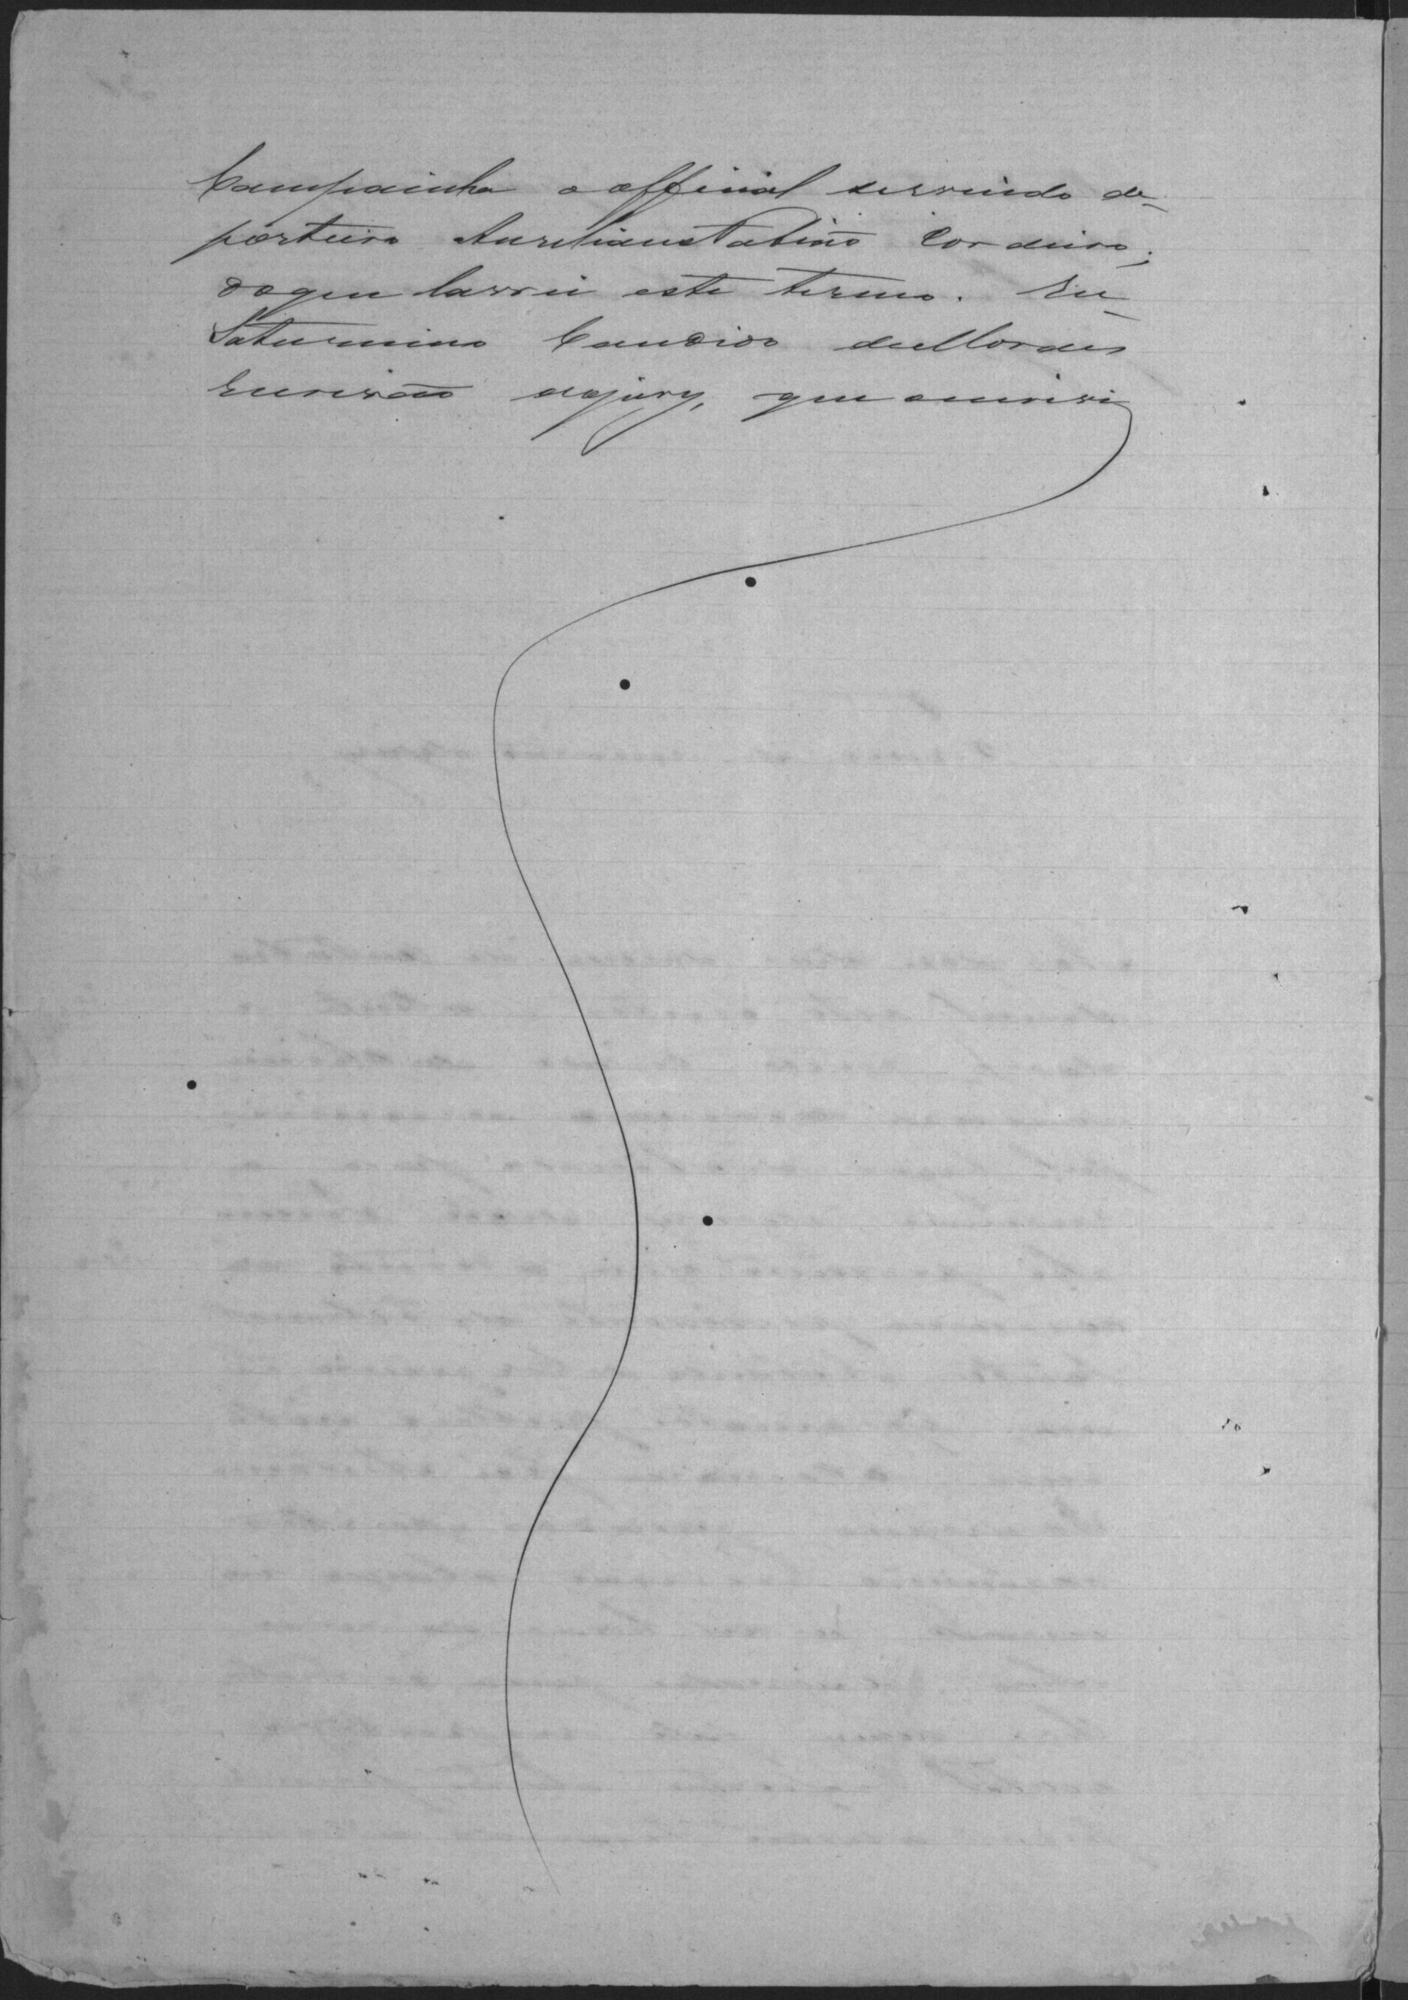 Campainha o official servindo de
porteiro Aureliano Patino Cordeiro;
do que lavrei este termo. Eu
Saturnino Candido de Moraes
Escrivão do jury, que escrevi